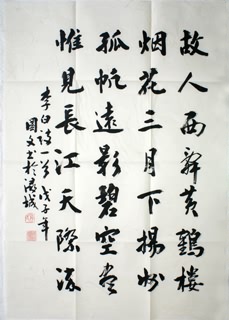 故人西辞黄鶴樓
烟花三月下揚州
孤帆遠影碧空尽
惟見長江天際流
李白詩一首 戊子年
國文书於城